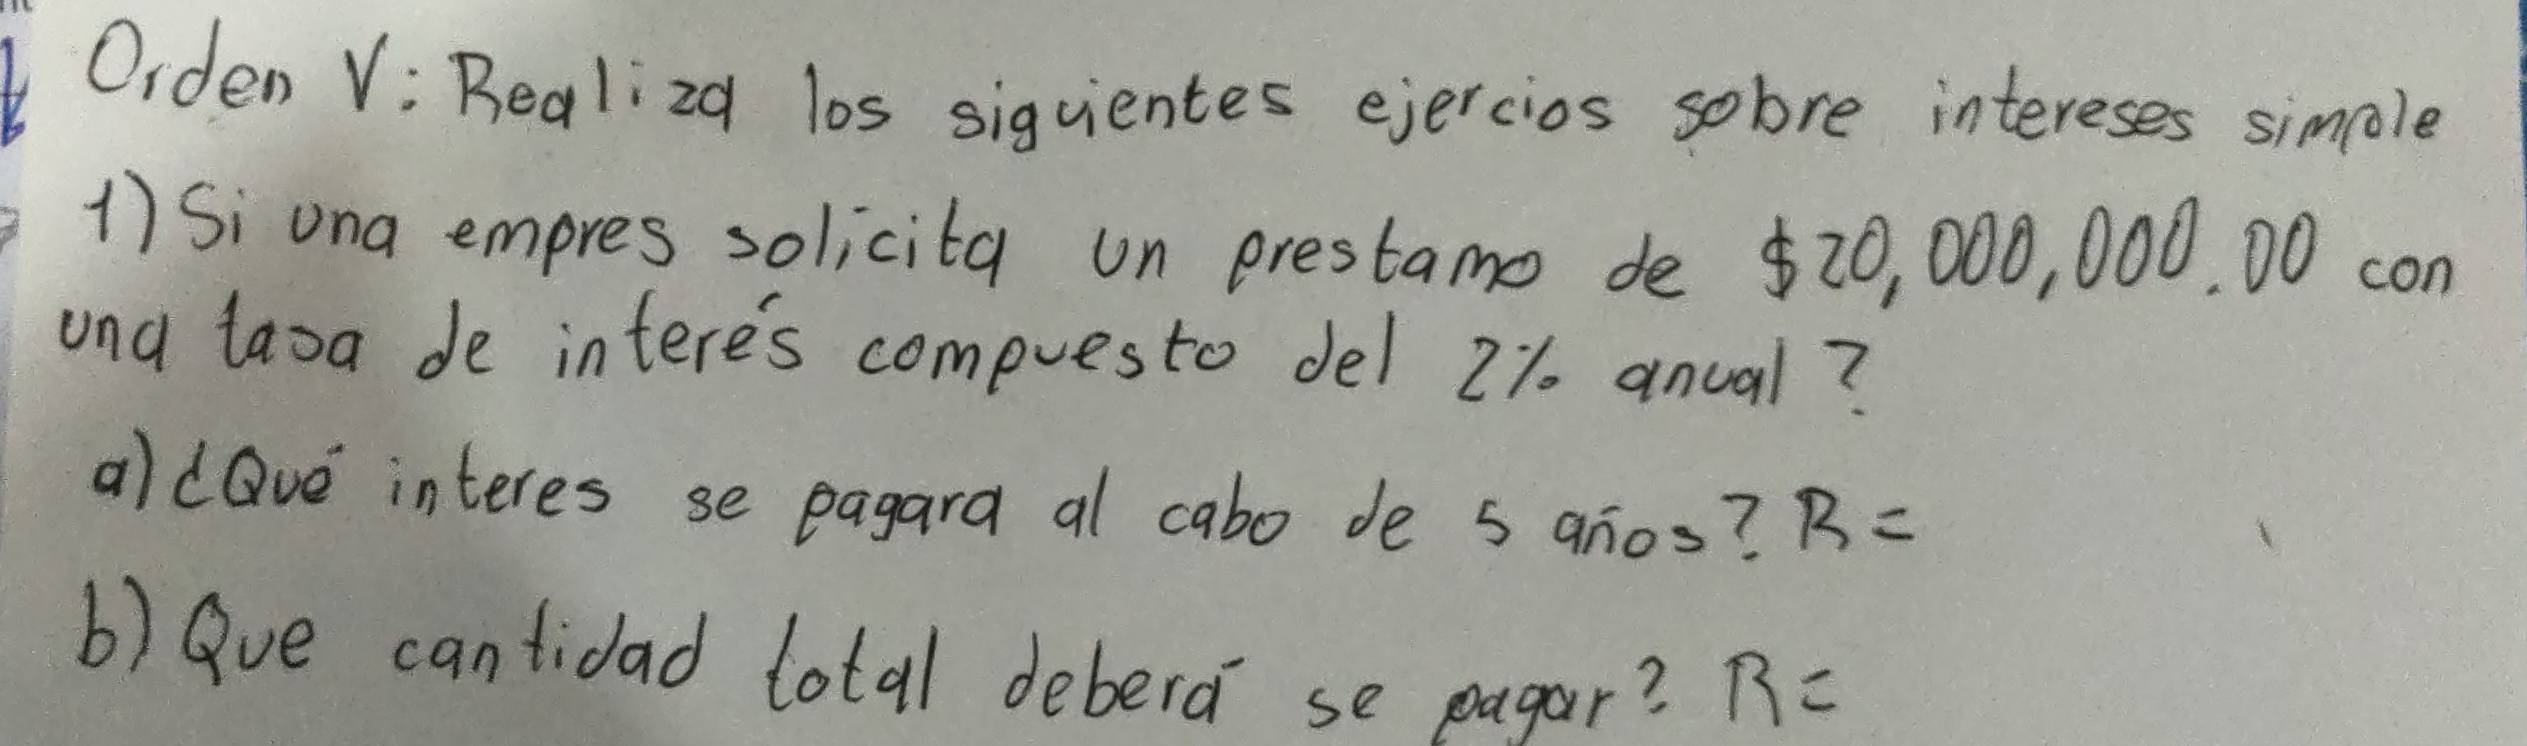 Orden V: Realiza los siguientes ejercios sobre intereses simple
1) Si una empres solicita un prestamo de $20,000,000.00 con
una tasa de interés compuesto del 2% anual?
a) ¿Qué interes se pagara al cabo de 5 años? R=
b) Que cantidad total deberá se pagar? R=